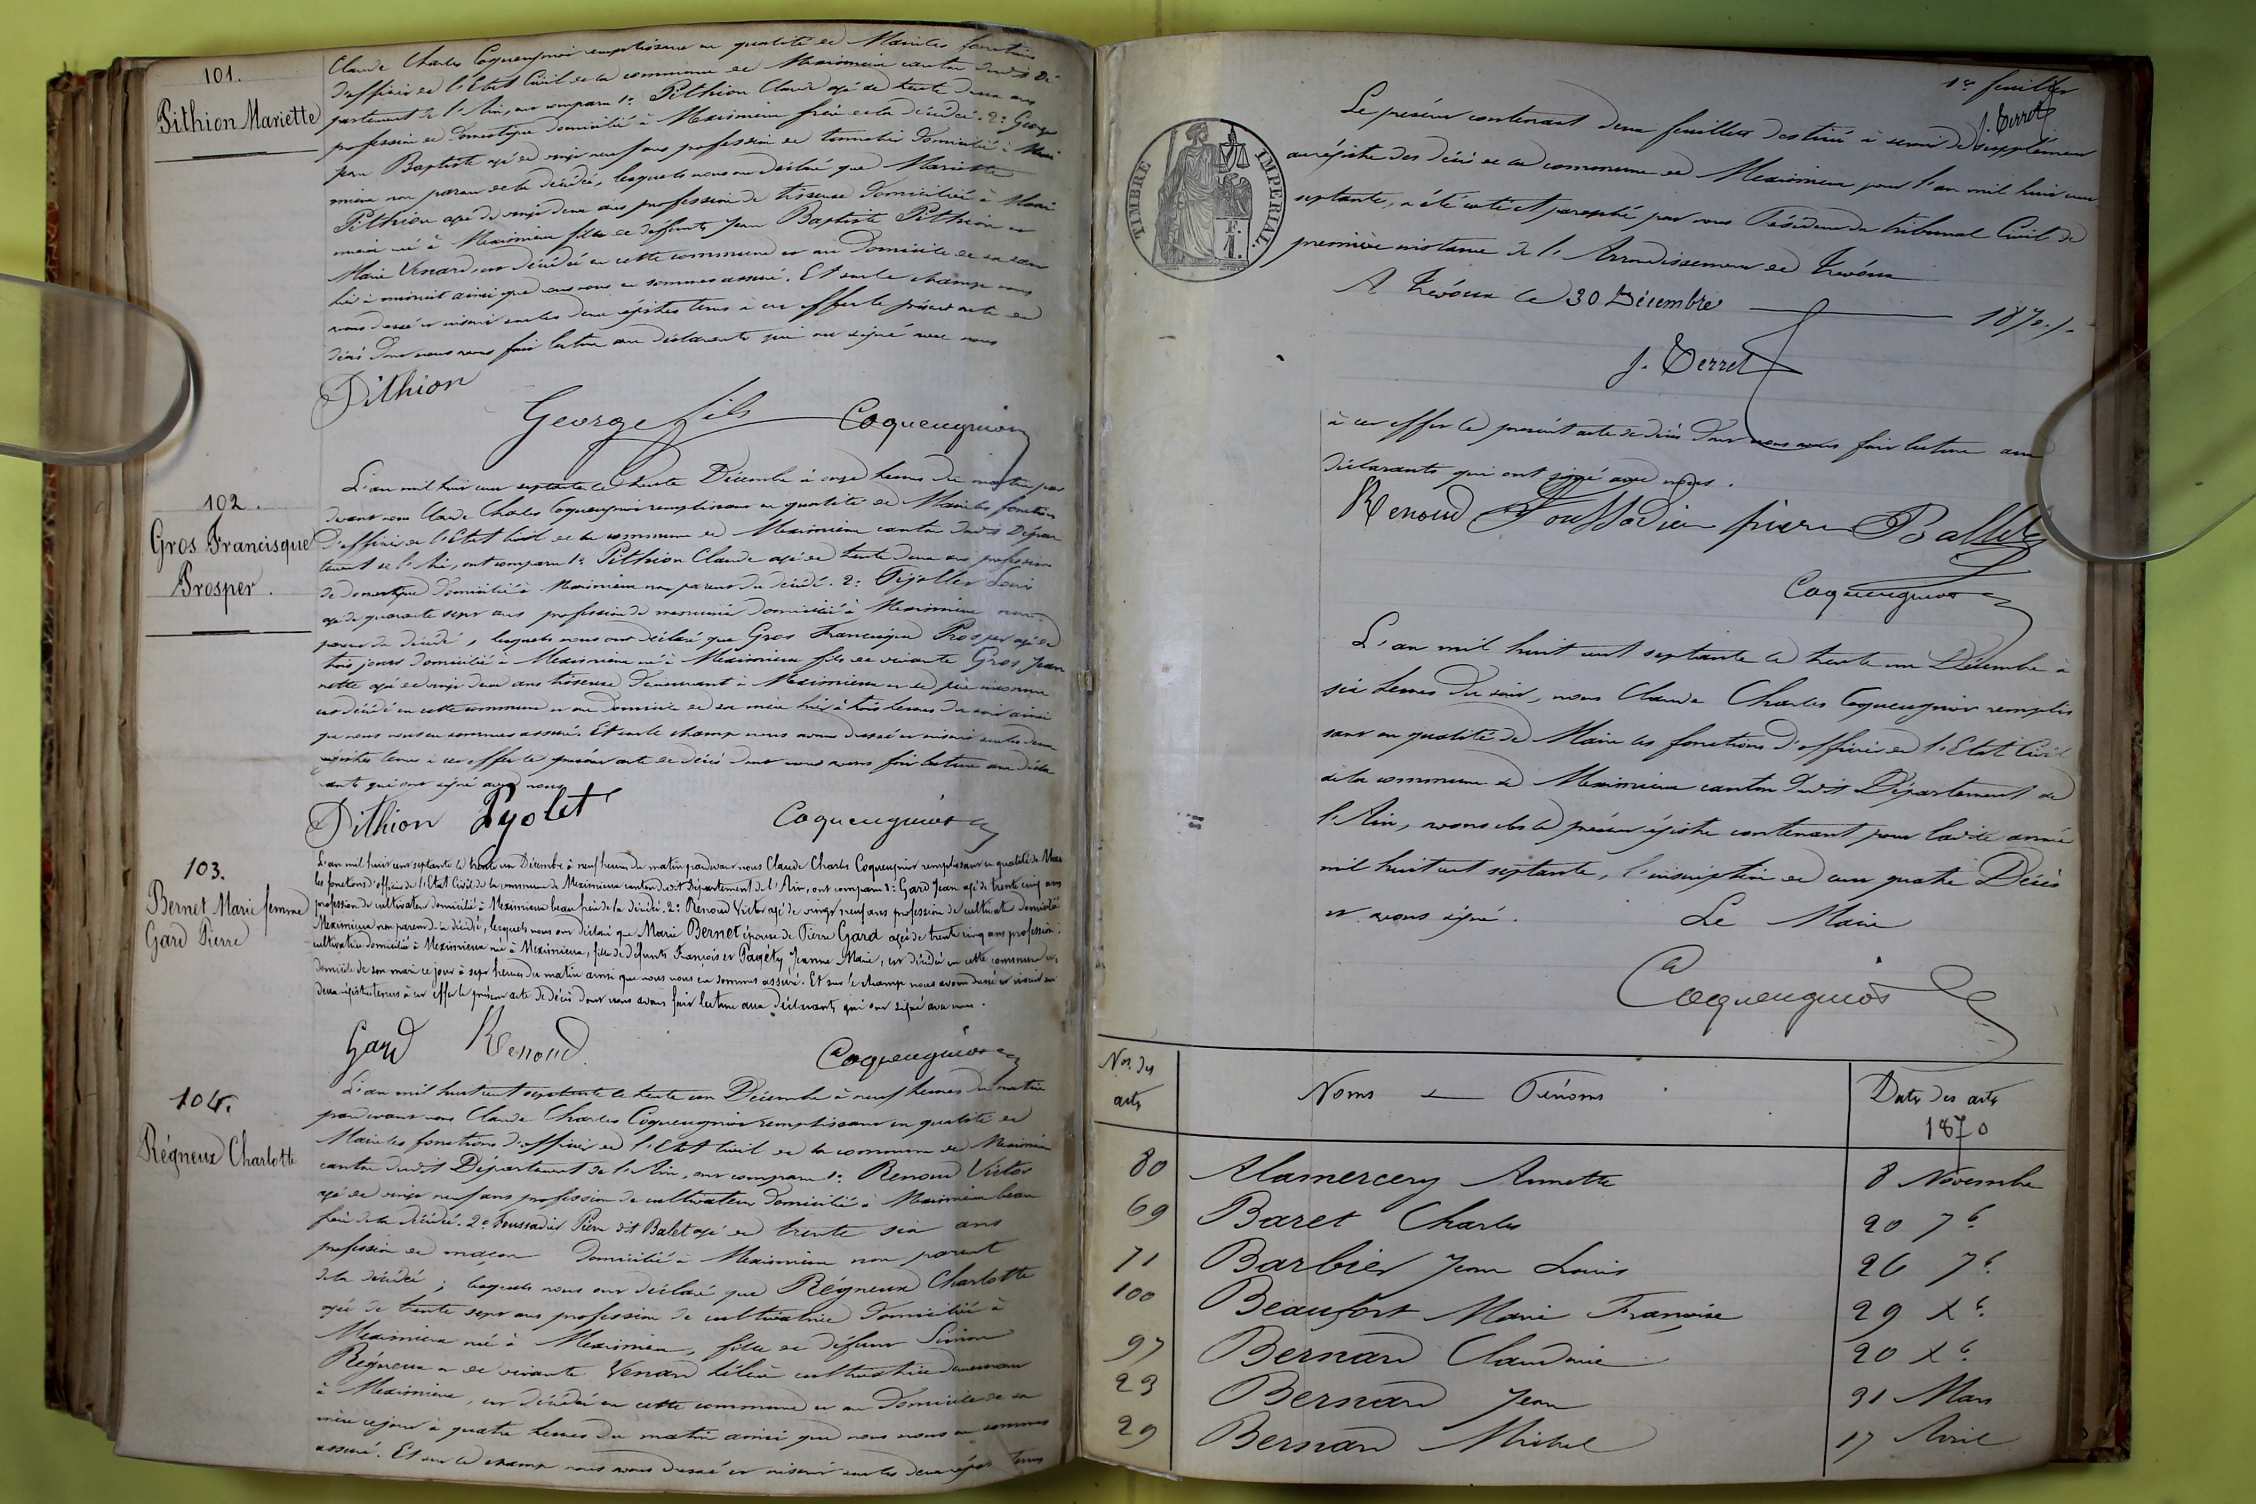 101.
Pithion Mariette
Claude Charles Coqueugniot remplissant en qualité de Maire les fonctions
d'officier de l'Etat Civil de la commune de Meximieux canton dudit Dé
partement de l'Ain, ont comparu 1º Pithion Claude agé de trente deux ans
profession de domestique domicilié à Meximieux frère de la décédée. 2º George
Jean Baptiste agé de vingt neuf ans profession de tonnelier domicilié à Mexi
mieux non parent de la décédée, lesquels nous ont déclaré que Mariette
Pithion agée de vingt deux ans profession de tisseuse domiciliée à Mexi
mieux née à Meximieux fille de défunts Jean Baptiste Pithion et
Marie Venard, est décédée en cette commune et au domicile de sa sœur
hier à minuit ainsi que nous nous en sommes assuré. Et sur le champ nous
avons dressé et inscrit sur les deux régistres tenus à cet effet le présent acte de
décès dont nous avons fait lecture aux déclarants qui ont signé avec nous
Pithion
George fils
Coqueugniot
102.
Gros Francisque
Prosper.
L'an mil huit cent septante le trente Décembre à onze heures du matin par
devant nous Claude Charles Coqueugniot remplissant en qualité de Maire les fonctions
d'officier de l'Etat Civil de la commune de Meximieux canton dudit Dépar
tement de l'Ain, ont comparu 1º Pithion Claude agé de trente deux ans profession
de domestique domicilié à Meximieux non parent du décédé. 2º Louis
agé de quarante sept ans profession de menuisier domicilié à Meximieux non
parent du décédé, lesquels nous ont déclaré que Gros Francisque Prosper agé de
trois jours domicilié à Meximieux né à Meximieux fils de vivante Gros Jean
nette agée de vingt deux ans tisseuse demeurant à Meximieux et de père inconnu
est décédé en cette commune et au domicile de sa mère hier à trois heures du soir ainsi
que nous nous en sommes assuré. Et sur le champ nous avons dressé et inscrit sur les deux
régistres tenus à cet effet le présent acte de décès dont nous avons fait lecture aux décla
rants qui ont signé avec nous
Pithion
Pyolet
Coqueugniot
103.
Bernet Marie femme
Gard Pierre
L'an mil huit cent septante le trente un Décembre à neuf heures du matin pardevant nous Claude Charles Coqueugniot remplissant en qualité de Maire
les fonctions d'officier de l'Etat Civil de la commune de Meximieux canton dudit Département de l'Ain, ont comparu 1º Gard Jean agé de trente cinq ans
profession de cultivateur domicilié à Meximieux beau frère de la décédée. 2º Renoud Victor agé de vingt neuf ans profession de cultivateur domicilié
Meximieux non parent de la décédée, lesquels nous ont déclaré que Marie Bernet épouse de Pierre Gard agée de trente cinq ans profession
cultivatrice domiciliée à Meximieux née à Meximieux, fille de défunts François et Jeanne Marie, est décédée en cette commune et
domicile de son mari ce jour à sept heures du matin ainsi que nous nous en sommes assuré. Et sur le champ nous avons dressé et inscrit sur
deux régistres tenus à cet effet le présent acte de décès dont nous avons fait lecture aux déclarants qui ont signé avec nous.
Gard
Renoud
Coqueugniot
104.
Régneux Charlotte
L'an mil huit cent septante le trente un Décembre à neuf heures du matin
pardevant nous Claude Charles Coqueugniot remplissant en qualité de
Maire les fonctions d'officier de l'Etat Civil de la commune de Meximieux
canton dudit Département de l'Ain, ont comparu 1º Renoud Victor
agé de vingt neuf ans profession de cultivateur domicilié à Meximieux beau
frère de la décédée. 2º Foussadier Pierre dit Balet agé de trente six ans
profession de maçon domicilié à Meximieux non parent
de la décédée; lesquels nous ont déclaré que Régneux Charlotte
agée de trente sept ans profession de cultivatrice domiciliée à
Meximieux née à Meximieux, fille de défunt Simon
Régneux et de vivante Venard cultivatrice demeurant
à Meximieux, est décédée en cette commune et au domicile de sa
mère ce jour à quatre heures du matin ainsi que nous nous en sommes
assuré. Et sur le champ nous avons dressé et inscrit sur les deux régistres tenus
1er feuillet
J. Terret
Le présent contenant deux feuillets destiné à servir de supplément
au régistre des décès de la commune de Meximieux pour l'an mil huit cent
septante, a été coté et paraphé par nous Président du tribunal Civil de
première instance de l'Arrondissement de Trévoux
A Trévoux le 30 Décembre 1870./.
J. Terret
TIMBRE IMPERIAL.
F.
1.
à cet effet le présent acte de décès dont nous avons fait lecture aux
déclarants qui ont signé avec nous.
Renoud Foussadier pierre Ballet
Coqueugniot
L'an mil huit cent septante le trente un Décembre à
six heures du soir, nous Claude Charles Coqueugniot remplis
sant en qualité de Maire les fonctions d'officier de l'Etat Civil
de la commune de Meximieux canton dudit Département de
l'Ain, avons clos le présent régistre contenant pour ladite année
mil huit cent septante, l'inscription de cent quatre Décès
et avons signé. Le Maire
Coqueugniot
Nos. des actes
Noms — Prénoms
Date des actes 1870
80 Alamercery Annette 8 Novembre
69 Baret Charles 20 7b.
71 Barbier Jean Louis 26 7b.
100 Beaufort Marie Françoise 29 Xb.
97 Bernard Claudine 20 Xb.
23 Bernard Jean 31 Mars
29 Bernard Michel 17 Avril